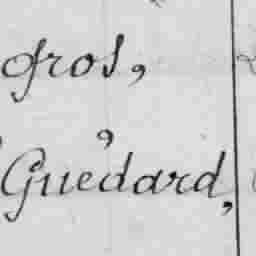 gros,
Guédard,